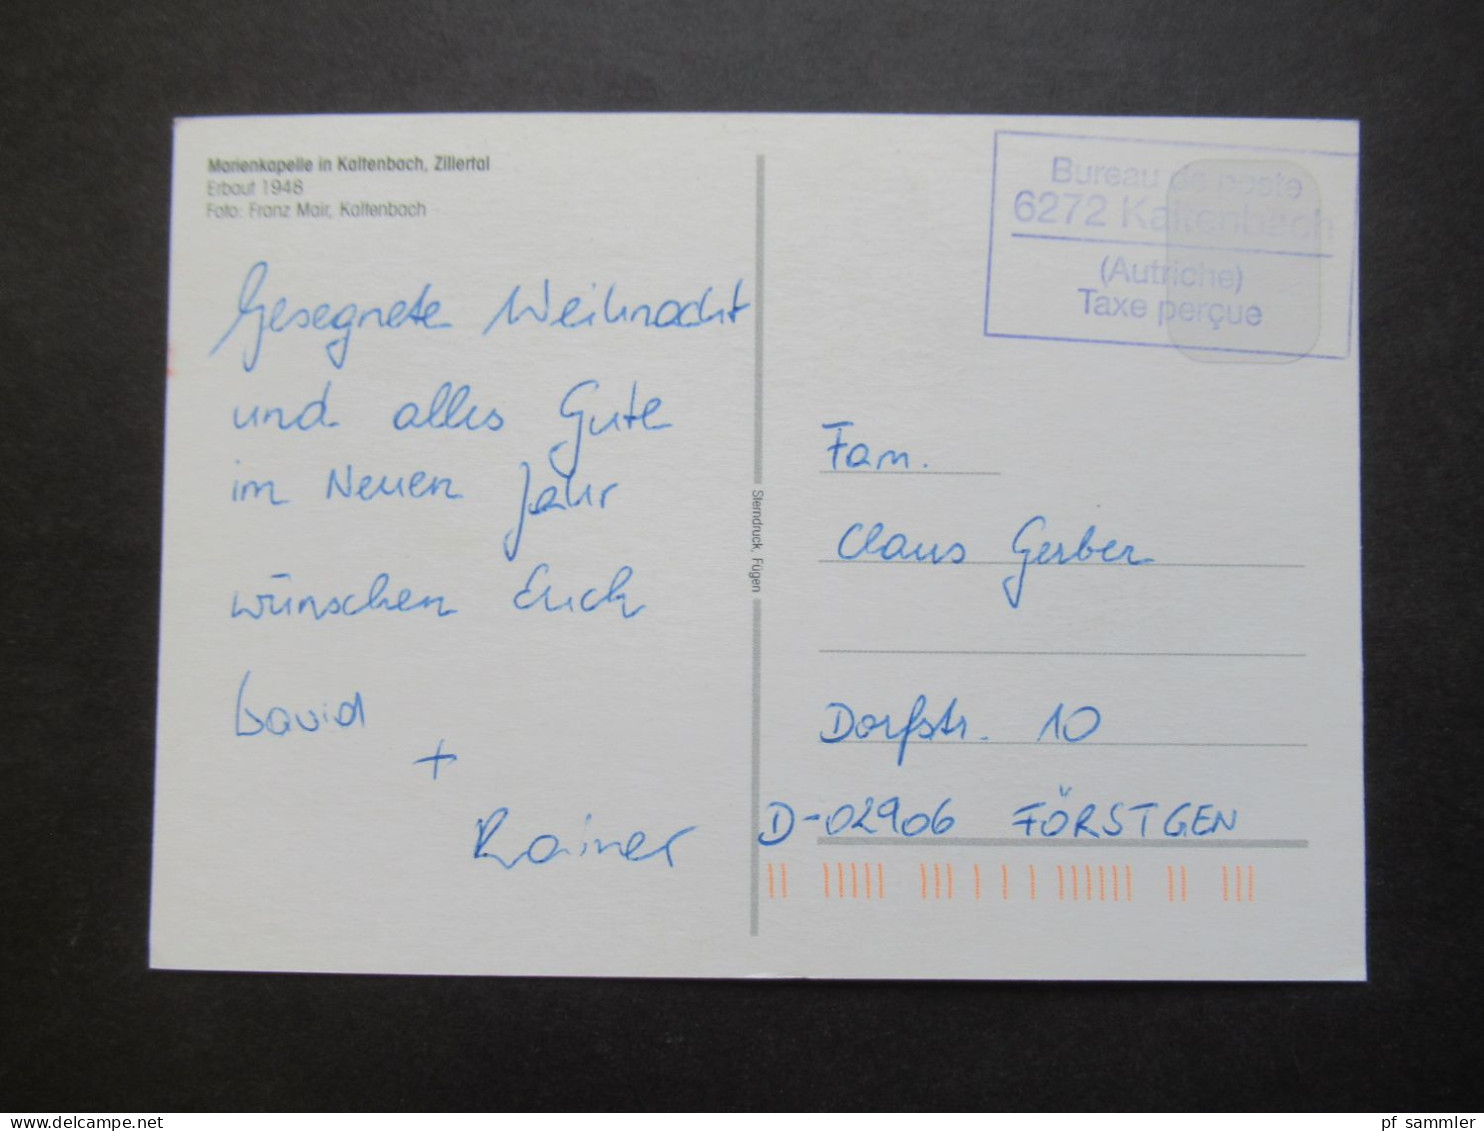 Marienkapelle in Kaltenbach, Zillertal
Erbaut 1948
Foto: Franz Mair, Kaltenbach
Gesegnete Weihnacht
und alles Gute
im Neuen Jahr
wünschen Euch
David
+
Rainer
Sterndruck, Fügen
Bureau de poste
6272 Kaltenbach
(Autriche)
Taxe perçue
Fam.
Claus Gerber
Dorfstr. 10
D-02906 FÖRSTGEN
delcampe.net
pf sammler